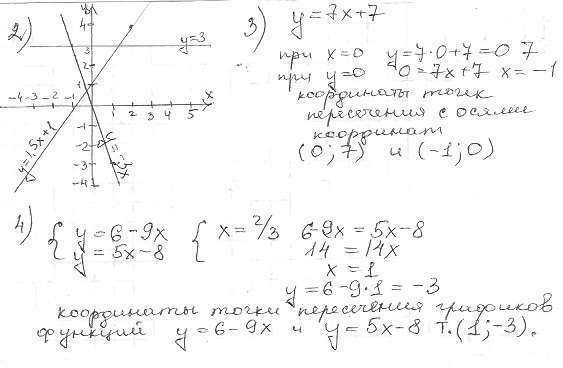 2)
y
4
3
2
1
y=3
-4 -3 -2 -1
1 2 3 4 5 x
-2
-3
-4
y=1,5x+1
y=-3x
3) y=7x+7
при x=0 y=7·0+7=0 7
при y=0 0=7x+7 x=-1
координаты точек
пересечения с осями
координат
(0;7) и (-1;0)
4) { y=6-9x { x=2/3 6-9x=5x-8
y=5x-8 14=14x
x=1
y=6-9·1=-3
координаты точки пересечения графиков
функций y=6-9x и y=5x-8 т.(1;-3).